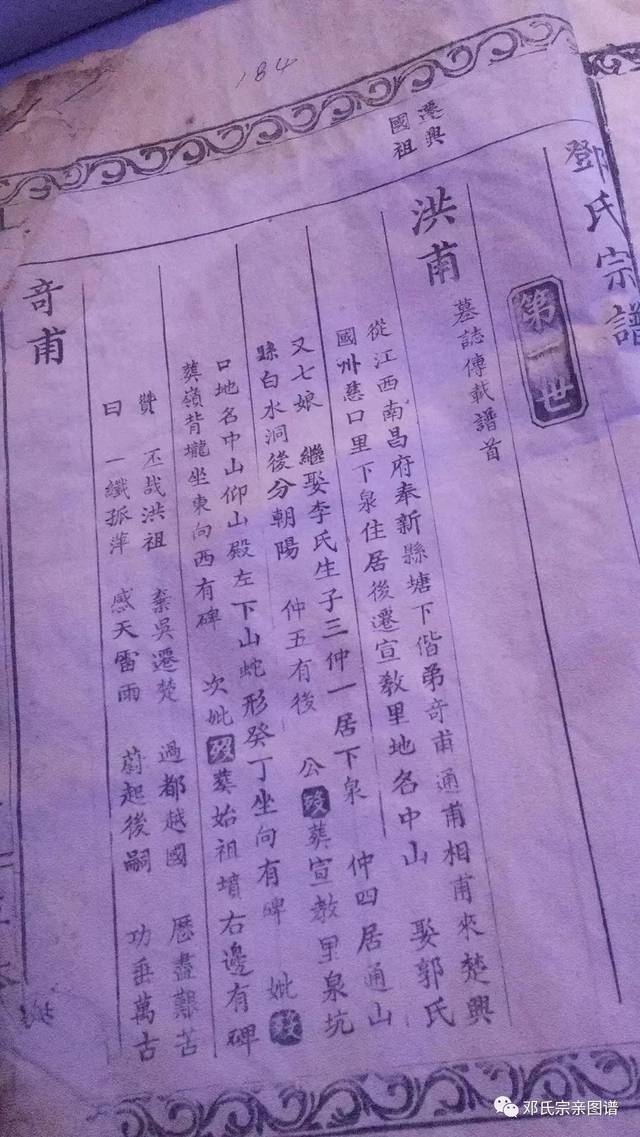 184
鄧氏宗譜
第一世
遷興
國祖
洪甫
墓誌傳載譜首
從江西南昌府奉新縣塘下偕弟奇甫通甫相甫來楚興
國州慈口里下泉住居後遷宣教里地名中山 娶郭氏
又七娘 繼娶李氏生子三仲一居下泉 仲四居通山
縣白水洞後分朝陽 仲五有後 公歿葬宣教里泉坑
口地名中山仰山殿左下山蛇形癸丁坐向有碑 妣歿
葬嶺背壠坐東向西有碑 次妣歿葬始祖墳右邊有碑
贊 丕哉洪祖 棄吳遷楚 過都越國 歷盡艱苦
曰 一纖孤萍 感天雷雨 蔚起後嗣 功垂萬古
奇甫
邓氏宗亲图谱